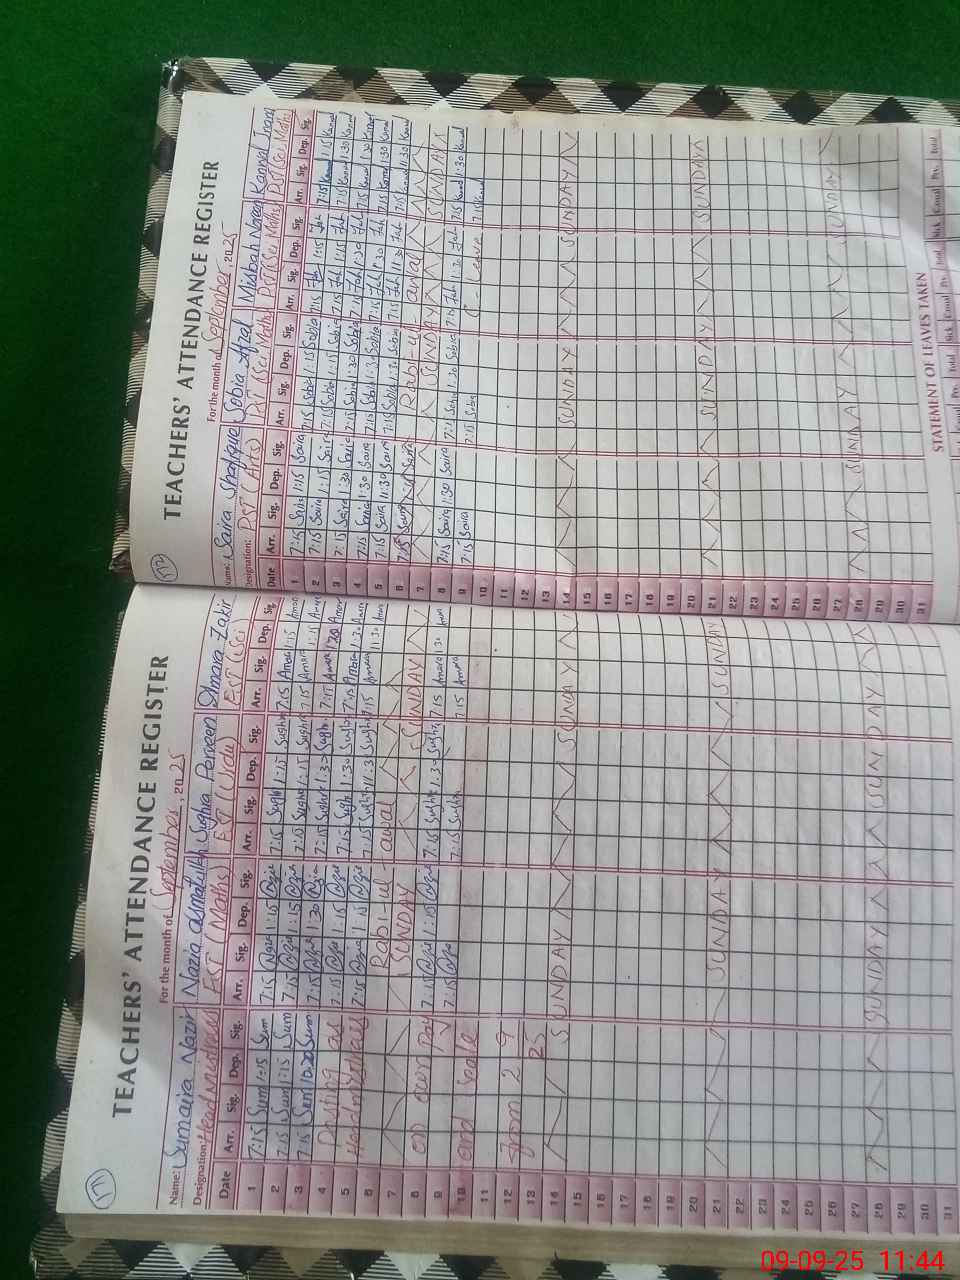 171
TEACHERS' ATTENDANCE REGISTER
For the month of September, 2025
Name: Sumaira Nazir Nazia Sughra Perveen Amara Zakir
Designation: Head Mistress EST (Maths) EST (Urdu) EST (Sci)
Date Arr. Sig. Dep. Sig. Arr. Sig. Dep. Sig. Arr. Sig. Dep. Sig. Arr. Sig. Dep. Sig.
1 7:15 Sum 1:15 Sum 7:15 1:15 7:15 Sughra 1:15 Sughra 7:15 Amara 1:15 Amara
2 7:15 Sum 1:15 Sum 7:15 1:15 7:15 Sughra 1:15 Sughra 7:15 Amara 1:15
3 7:15 Sum 10:20 Sum 7:15 1:30 7:15 Sughra 1:30 Sugh 7:15 Amara 1:30 Amar
4 Posting as 7:15 1:15 7:15 Sughra 1:30 Sughra 7:15 Amara 1:30 Amara
5 Headmistress 7:15 1:15 7:15 Sughra 11:3 Sughra 7:15 Amara 1:30 Amar
6 Rab-i-ul-awal
7 SUNDAY SUNDAY
8 on own Pay 7:15 1:15 7:15 Sughra 1:30 Sughra 7:15 Amara 1:30 Amar
9 7:15 7:15 Sughra 7:15 Amara
10 and Scale
11
12 from 2 9
13 25
14 SUNDAY SUNDAY
15
16
17
18
19
20
21 SUNDAY SUNDAY
22
23
24
25
26
27
28 SUNDAY SUNDAY
29
30
31
172
TEACHERS' ATTENDANCE REGISTER
For the month of September, 2025
Name: Saira Shafique Sobia Afzal Misbah Noreen Kanwal
Designation: PST (Arts) PST (Sci Maths) PST (Sci Maths) PST (Sci Maths)
Date Arr. Sig. Dep. Sig. Arr. Sig. Dep. Sig. Arr. Sig. Dep. Sig. Arr. Sig. Dep. Sig.
1 7:15 Saira 1:15 Saira 7:15 Sobia 1:15 Sobia 7:15 1:15 7:15 Kanwal 1:15 Kanwal
2 7:15 Saira 1:15 Saira 7:15 Sobia 1:15 Sobia 7:15 1:15 7:15 Kanwal 1:30 Kanwal
3 7:15 Saira 1:30 Saira 7:15 Sobia 1:30 Sobia 7:15 1:30 7:15 Kanwal 1:30 Kanwal
4 7:15 Saira 1:30 Saira 7:15 Sobia 1:30 Sobia 7:15 1:30 7:15 Kanwal 1:30 Kanwal
5 7:15 Saira 11:30 Saira 7:15 Sobia 11:30 Sobia 7:15 11:30 7:15 Kanwal 11:30 Kanwal
6 7:15 Saira Saira Rabi-ul-awal
7 SUNDAY SUNDAY
8 7:15 Saira 1:30 Saira 7:15 Sobia 1:30 Sobia 7:15 1:30 7:15 Kanwal 1:30 Kanwal
9 7:15 Saira 7:15 Sobia C-Leave 7:15 Kanwal
10
11
12
13
14 SUNDAY SUNDAY
15
16
17
18
19
20
21 SUNDAY SUNDAY
22
23
24
25
26
27
28 SUNDAY SUNDAY
29
30
31
STATEMENT OF LEAVES TAKEN
Sick Casual Prv. Total Sick Casual Prv. Total
09-09-25 11:44